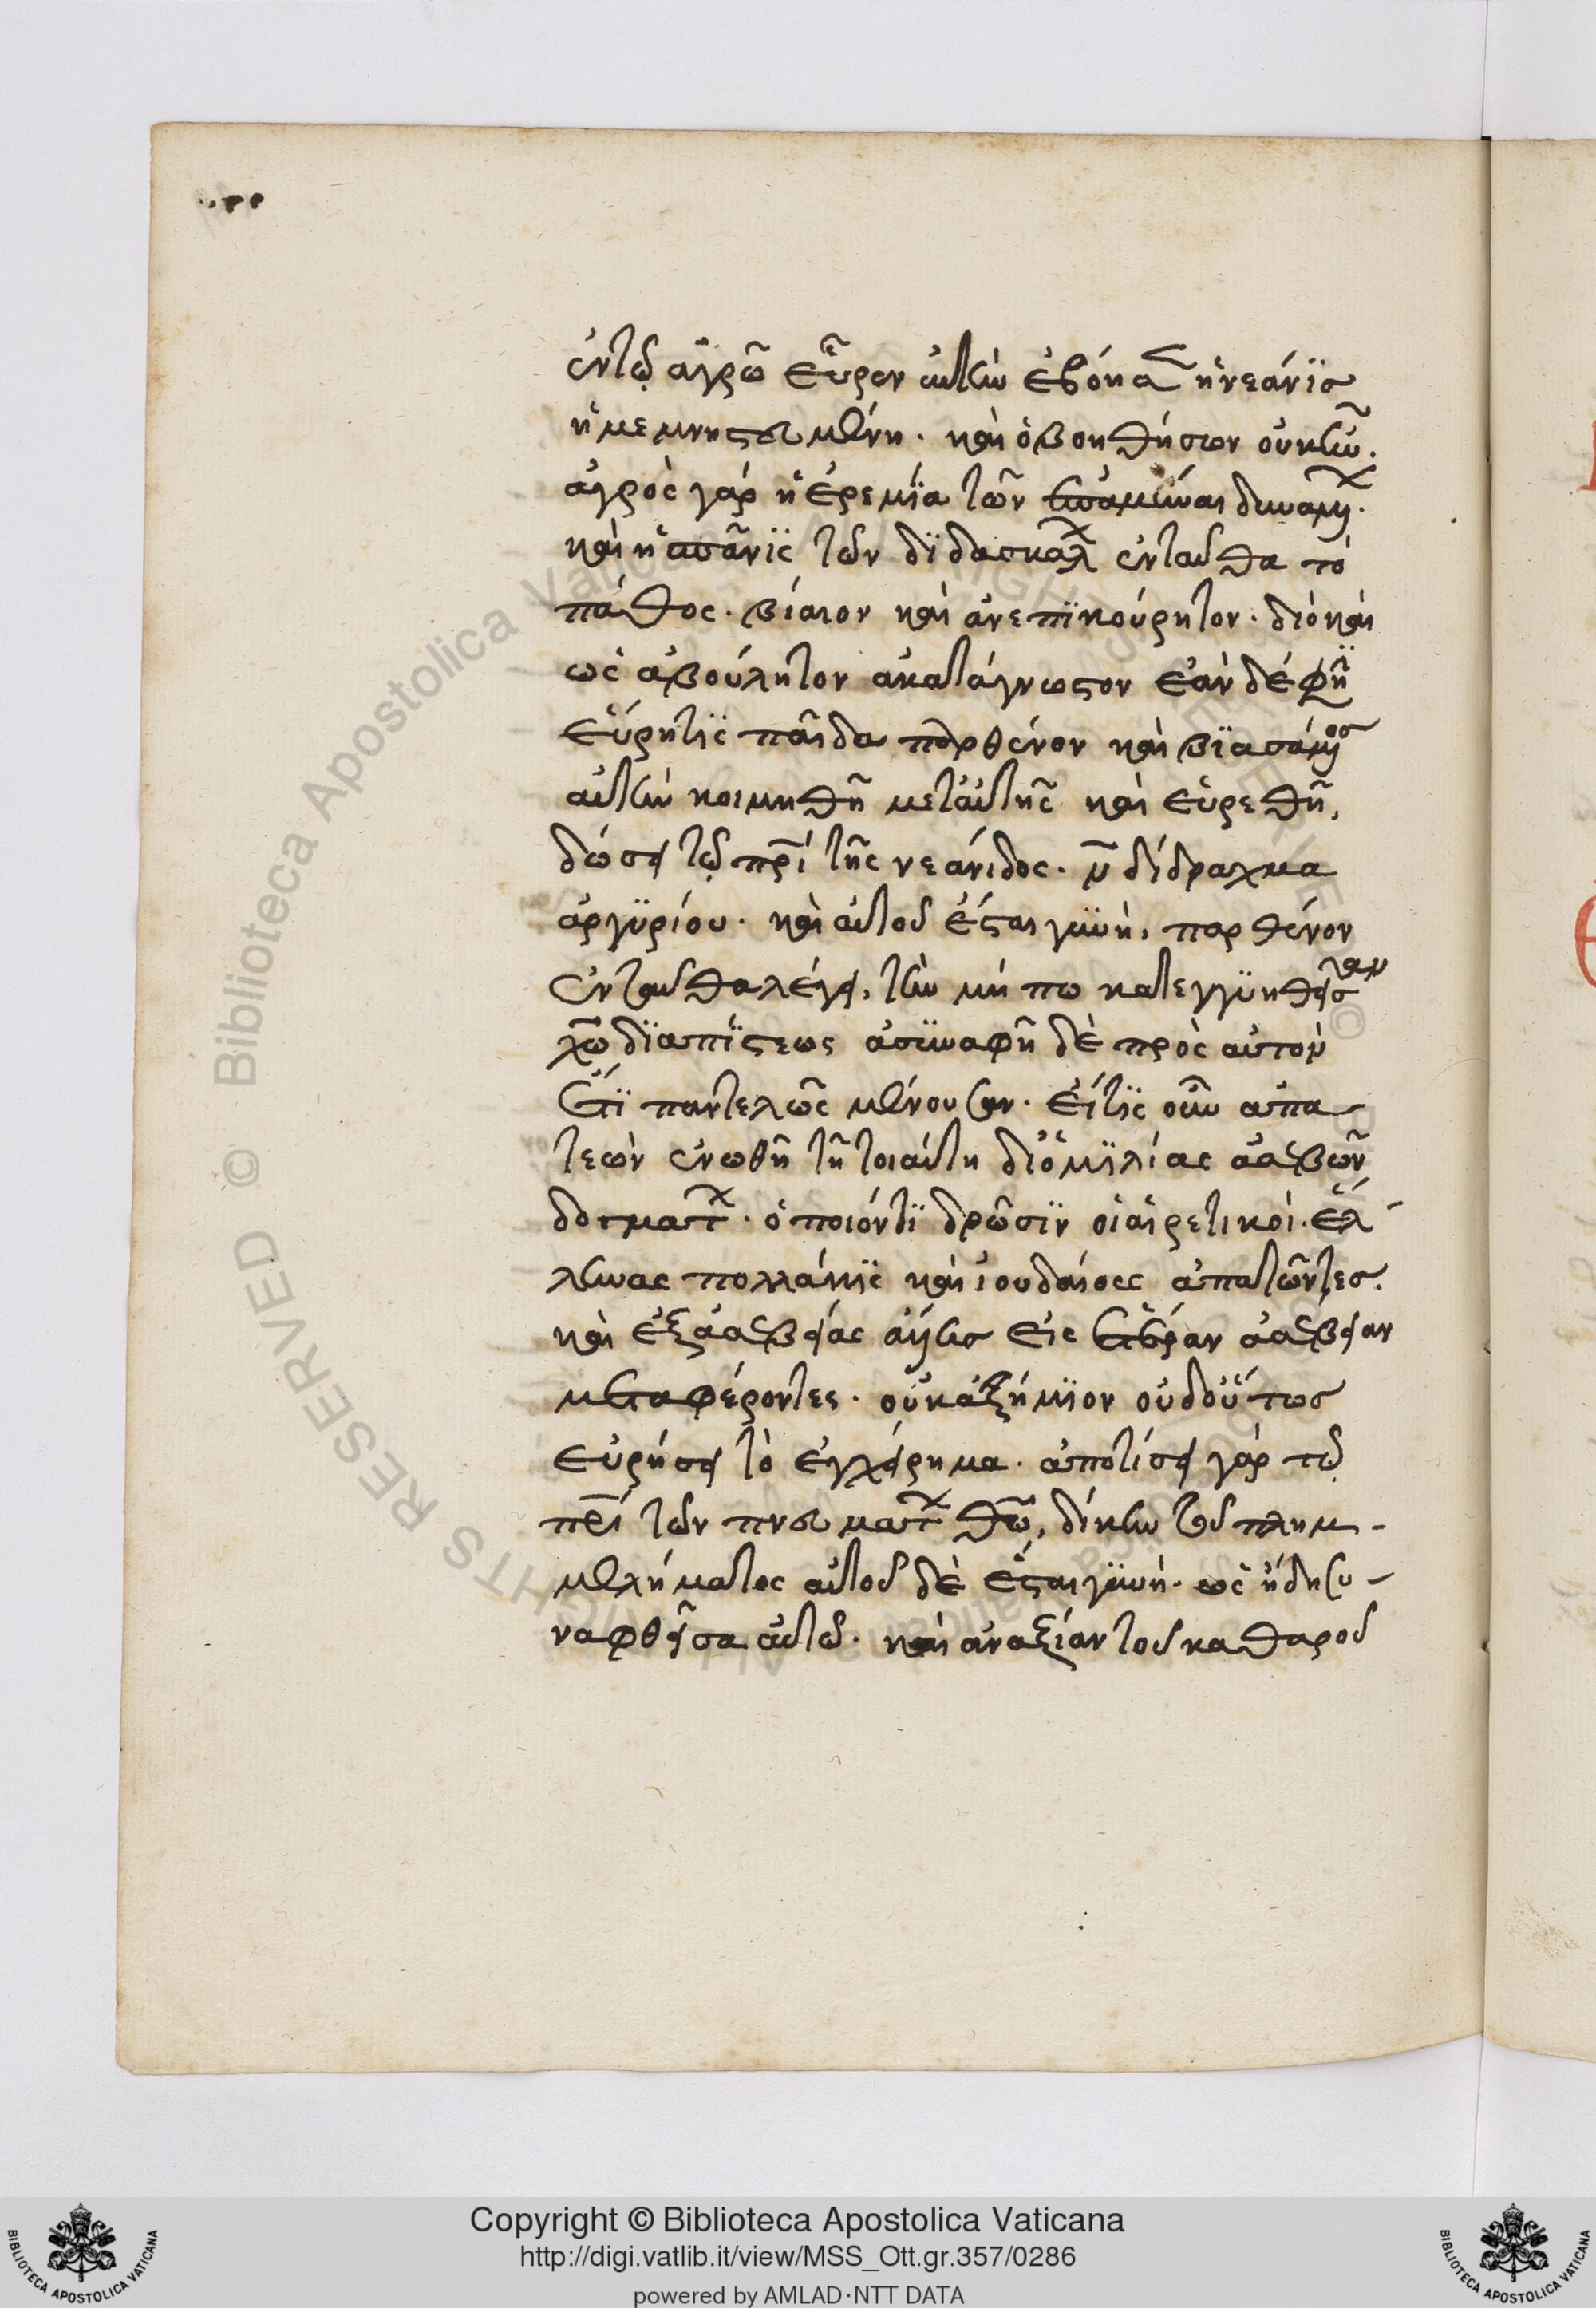 ἐν τῷ ἀγρῷ εὗρεν αὐτὴν ἐβόησεν ἡ νεάνϊσ
ἡ μεμνηστευμένη. καὶ ὁ βοηθήσων οὐκ ἦν.
ἀγρὸς γὰρ ἡ ἐρεμϊα τῶν ἐπαμύναι δυναμένων.
καὶ ἡ σπάνϊς τῶν δϊδασκάλων ἐνταῦθα τὸ
πάθος. βίαιον καὶ ἀνεπϊκούρητον. διὸ καὶ
ὡς ἀβούλητον ἀκατάγνωστον ἐὰν δέ φη
εὕρη τϊς παῖδα παρθένον καὶ βϊασάμενος
αὐτὴν κοιμηθῆ μετ αὐτῆς καὶ εὑρεθῆ,
δώσει τῷ πρὶ τῆς νεάνιδος. ν δίδραχμα
ἀργϋρίου. καὶ αὐτοῦ ἔσται γυνὴ, παρθένον
ἐνταῦθα λέγει, τὴν μή πω κατεγγϋηθεῖσαν
χω δϊα πίστεως ἀσϋναφῆ δὲ πρὸς αὐτὸν
ἔτϊ παντελῶς μένουσαν. εἴ τϊς οὖν ἀπα
τεὼν ἑνωθῆ τῆ τοιαύτη δι ὁμϊλίας ἀσεβῶν
δογμάτων. ὁποιόν τϊ δρῶσϊν οἱ αἱρετικοί. ἕλ
ληνας πολλάκϊς καὶ ἰουδαίους ἀπατῶντες.
καὶ ἐξ ἀσεβείας αὐτοὺς εἰς ἑτέραν ἀσέβειαν
μεταφέροντες. οὐκ ἀζήμϊον οὐδ οὕτως
εὑρήσει τὸ ἐγχείρημα. ἀποτίσει γὰρ τῷ
πρι τῶν πνευμάτων θω, δίκην τοῦ πλημ-
μελήματος αὐτοῦ δὲ ἔσται γυνὴ. ὡς ἤδη συ-
ναφθεῖσα αὐτῷ. καὶ ἀναξίαν τοῦ καθαροῦ
Copyright © Biblioteca Apostolica Vaticana
http://digi.vatlib.it/view/MSS_Ott.gr.357/0286
powered by AMLAD·NTT DATA